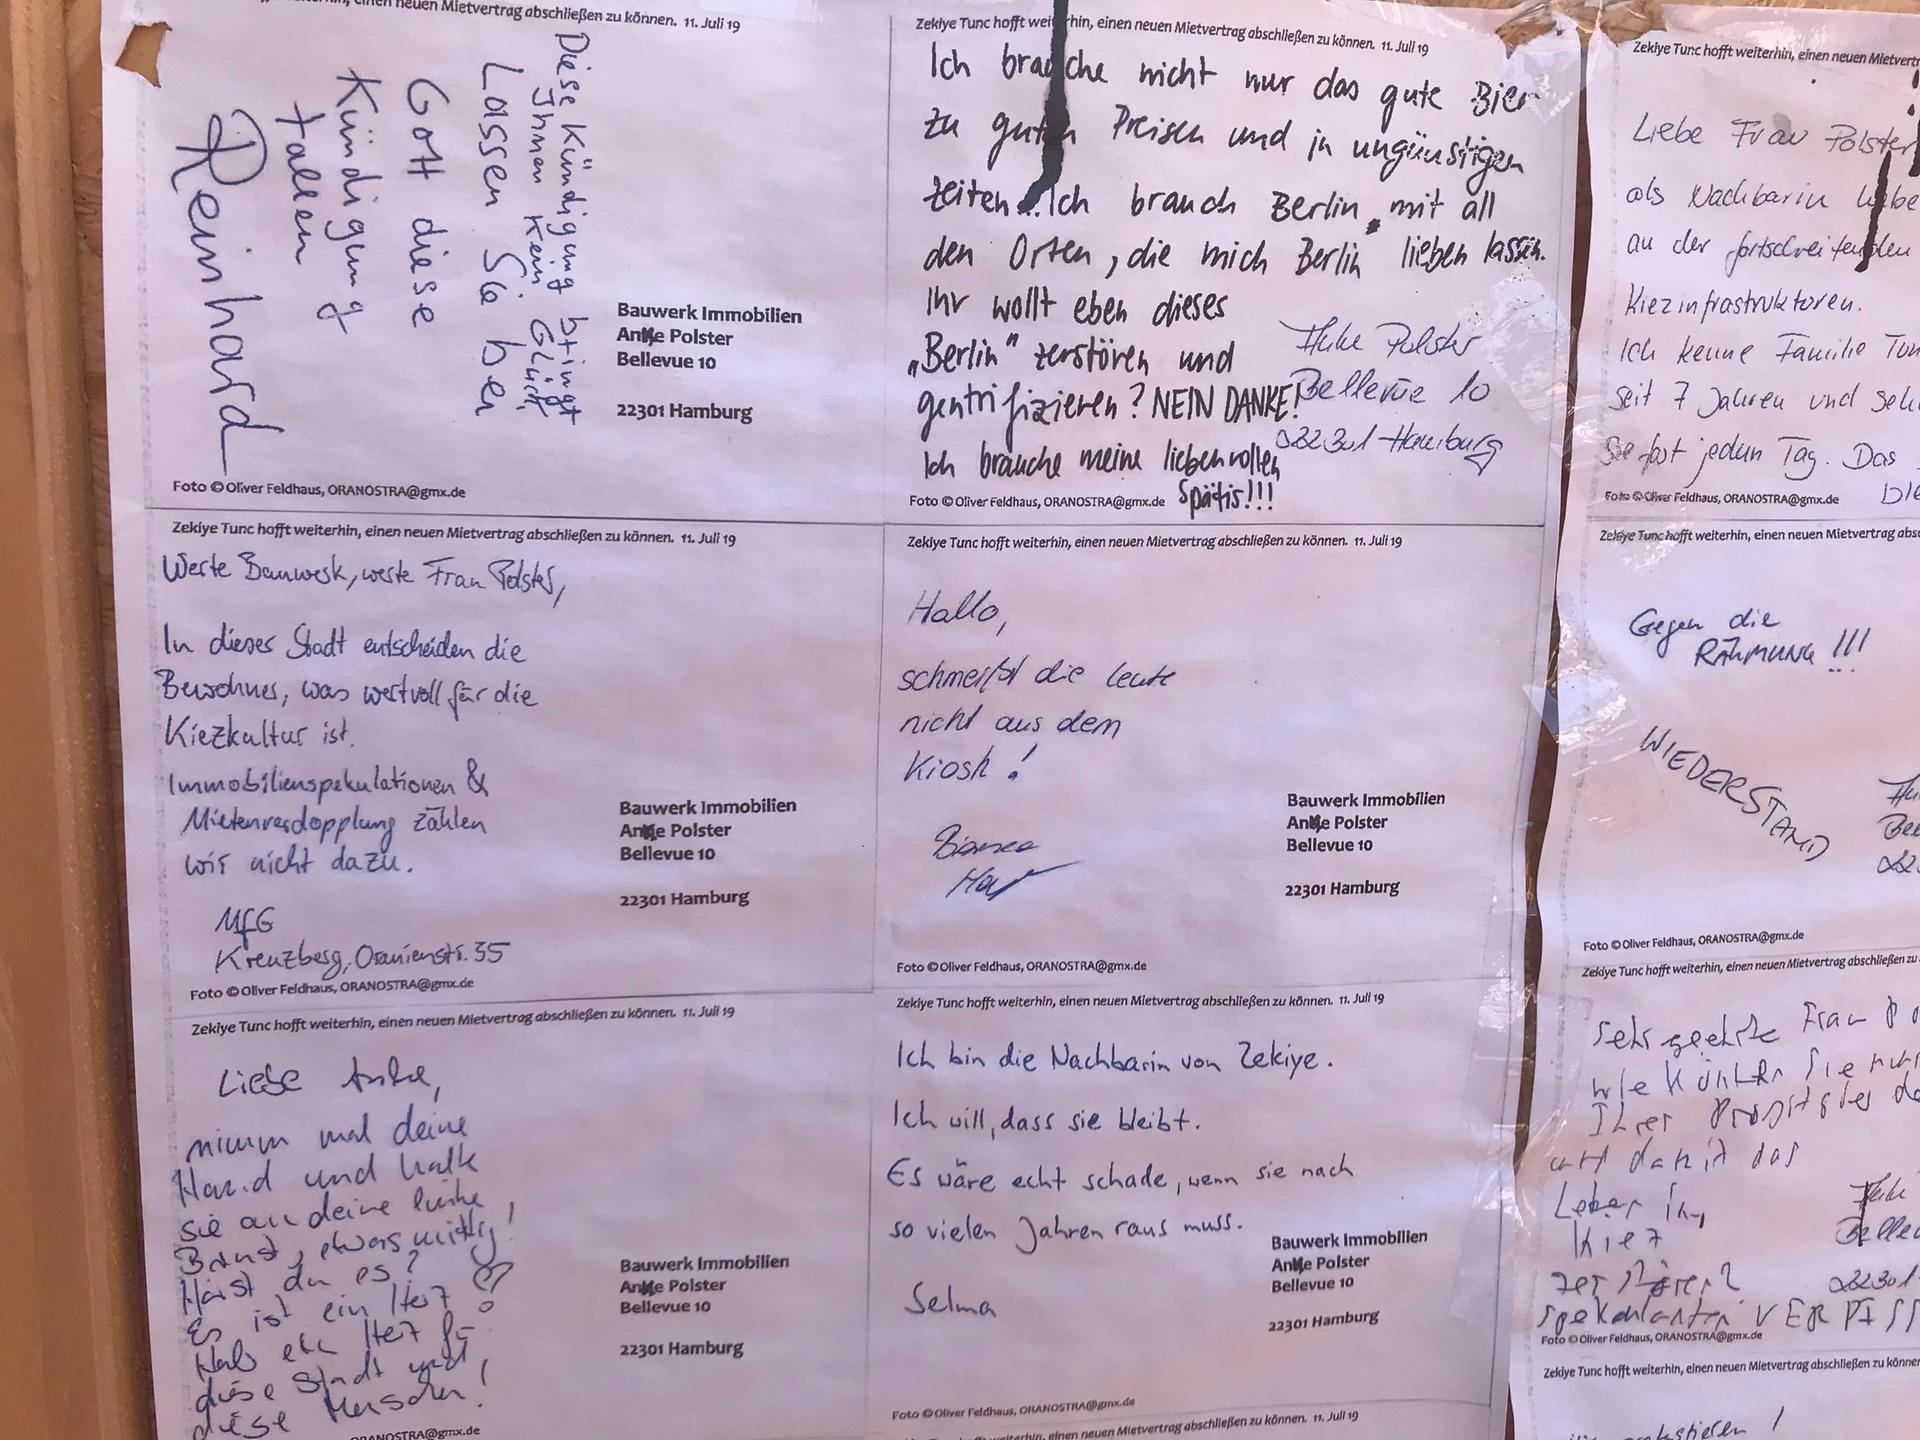 einen neuen Mietvertrag abschließen zu können. 11. Juli 19
Diese Kündigung bringt
Ihnen kein Glück.
Lassen Sie bei
Gott diese
Kündigung
fallen
Reinhard
Bauwerk Immobilien
Anke Polster
Bellevue 10
22301 Hamburg
Foto © Oliver Feldhaus, ORANOSTRA@gmx.de
Zekiye Tunc hofft weiterhin, einen neuen Mietvertrag abschließen zu können. 11. Juli 19
Ich brauche nicht nur das gute Bier
zu guten Preisen und in ungünstigen
Zeiten. Ich brauch Berlin mit all
den Orten, die mich Berlin lieben lassen.
Ihr wollt eben dieses
„Berlin“ zerstören und
gentrifizieren? NEIN DANKE!
Ich brauche meine liebenvollen
Spätis!!!
Anke Polster
Bellevue 10
22301 Hamburg
Foto © Oliver Feldhaus, ORANOSTRA@gmx.de
Zekiye Tunc hofft weiterhin, einen neuen Mietvertrag abschließen zu können. 11. Juli 19
Werte Bauwerk, werte Frau Polster,
In dieser Stadt entscheiden die
Bewohner, was wertvoll für die
Kiezkultur ist.
Immobilienspekulationen &
Mietenverdopplung zählen
wir nicht dazu.
MfG
Kreuzberg, Oranienstr. 35
Bauwerk Immobilien
Anke Polster
Bellevue 10
22301 Hamburg
Foto © Oliver Feldhaus, ORANOSTRA@gmx.de
Zekiye Tunc hofft weiterhin, einen neuen Mietvertrag abschließen zu können. 11. Juli 19
Hallo,
schmeißt die leute
nicht aus dem
Kiosk!
Bauwerk Immobilien
Anke Polster
Bellevue 10
22301 Hamburg
Foto © Oliver Feldhaus, ORANOSTRA@gmx.de
Zekiye Tunc hofft weiterhin, einen neuen Mietvertrag abschließen zu können. 11. Juli 19
Liebe Anke,
nimm mal deine
Hand und halte
sie an deine linke
Brust, etwas mittig!
Hörst du es?
Es ist ein Herz
Hab ein Herz für
diese Stadt und
diese Menschen!
Bauwerk Immobilien
Anke Polster
Bellevue 10
22301 Hamburg
ORANOSTRA@gmx.de
Zekiye Tunc hofft weiterhin, einen neuen Mietvertrag abschließen zu können. 11. Juli 19
Ich bin die Nachbarin von Zekiye.
Ich will, dass sie bleibt.
Es wäre echt schade, wenn sie nach
so vielen Jahren raus muss.
Selma
Bauwerk Immobilien
Anke Polster
Bellevue 10
22301 Hamburg
Foto © Oliver Feldhaus, ORANOSTRA@gmx.de
einen neuen Mietvertrag abschließen zu können. 11. Juli 19
Zekiye Tunc hofft weiterhin, einen neuen Mietvert
Liebe Frau Polster
als Nachbarin
an der fortschreitenden
Kiezinfrastrukturen.
Ich kenne Familie Tun
seit 7 Jahren und seh
Sie fast jeden Tag. Das
Foto © Oliver Feldhaus, ORANOSTRA@gmx.de
Zekiye Tunc hofft weiterhin, einen neuen Mietvertrag abs
Gegen die
RÄHMUNG!!!
WIEDERSTAND
Foto © Oliver Feldhaus, ORANOSTRA@gmx.de
Zekiye Tunc hofft weiterhin, einen neuen Mietvertrag abschließen zu
Sehr geehrte Frau
wie können Sie nur
Ihrer
und damit das
Leben im
Kiez
zerstören?
22301
Spekulanten VERPISS
Foto © Oliver Feldhaus, ORANOSTRA@gmx.de
Zekiye Tunc hofft weiterhin, einen neuen Mietvertrag abschließen zu könne